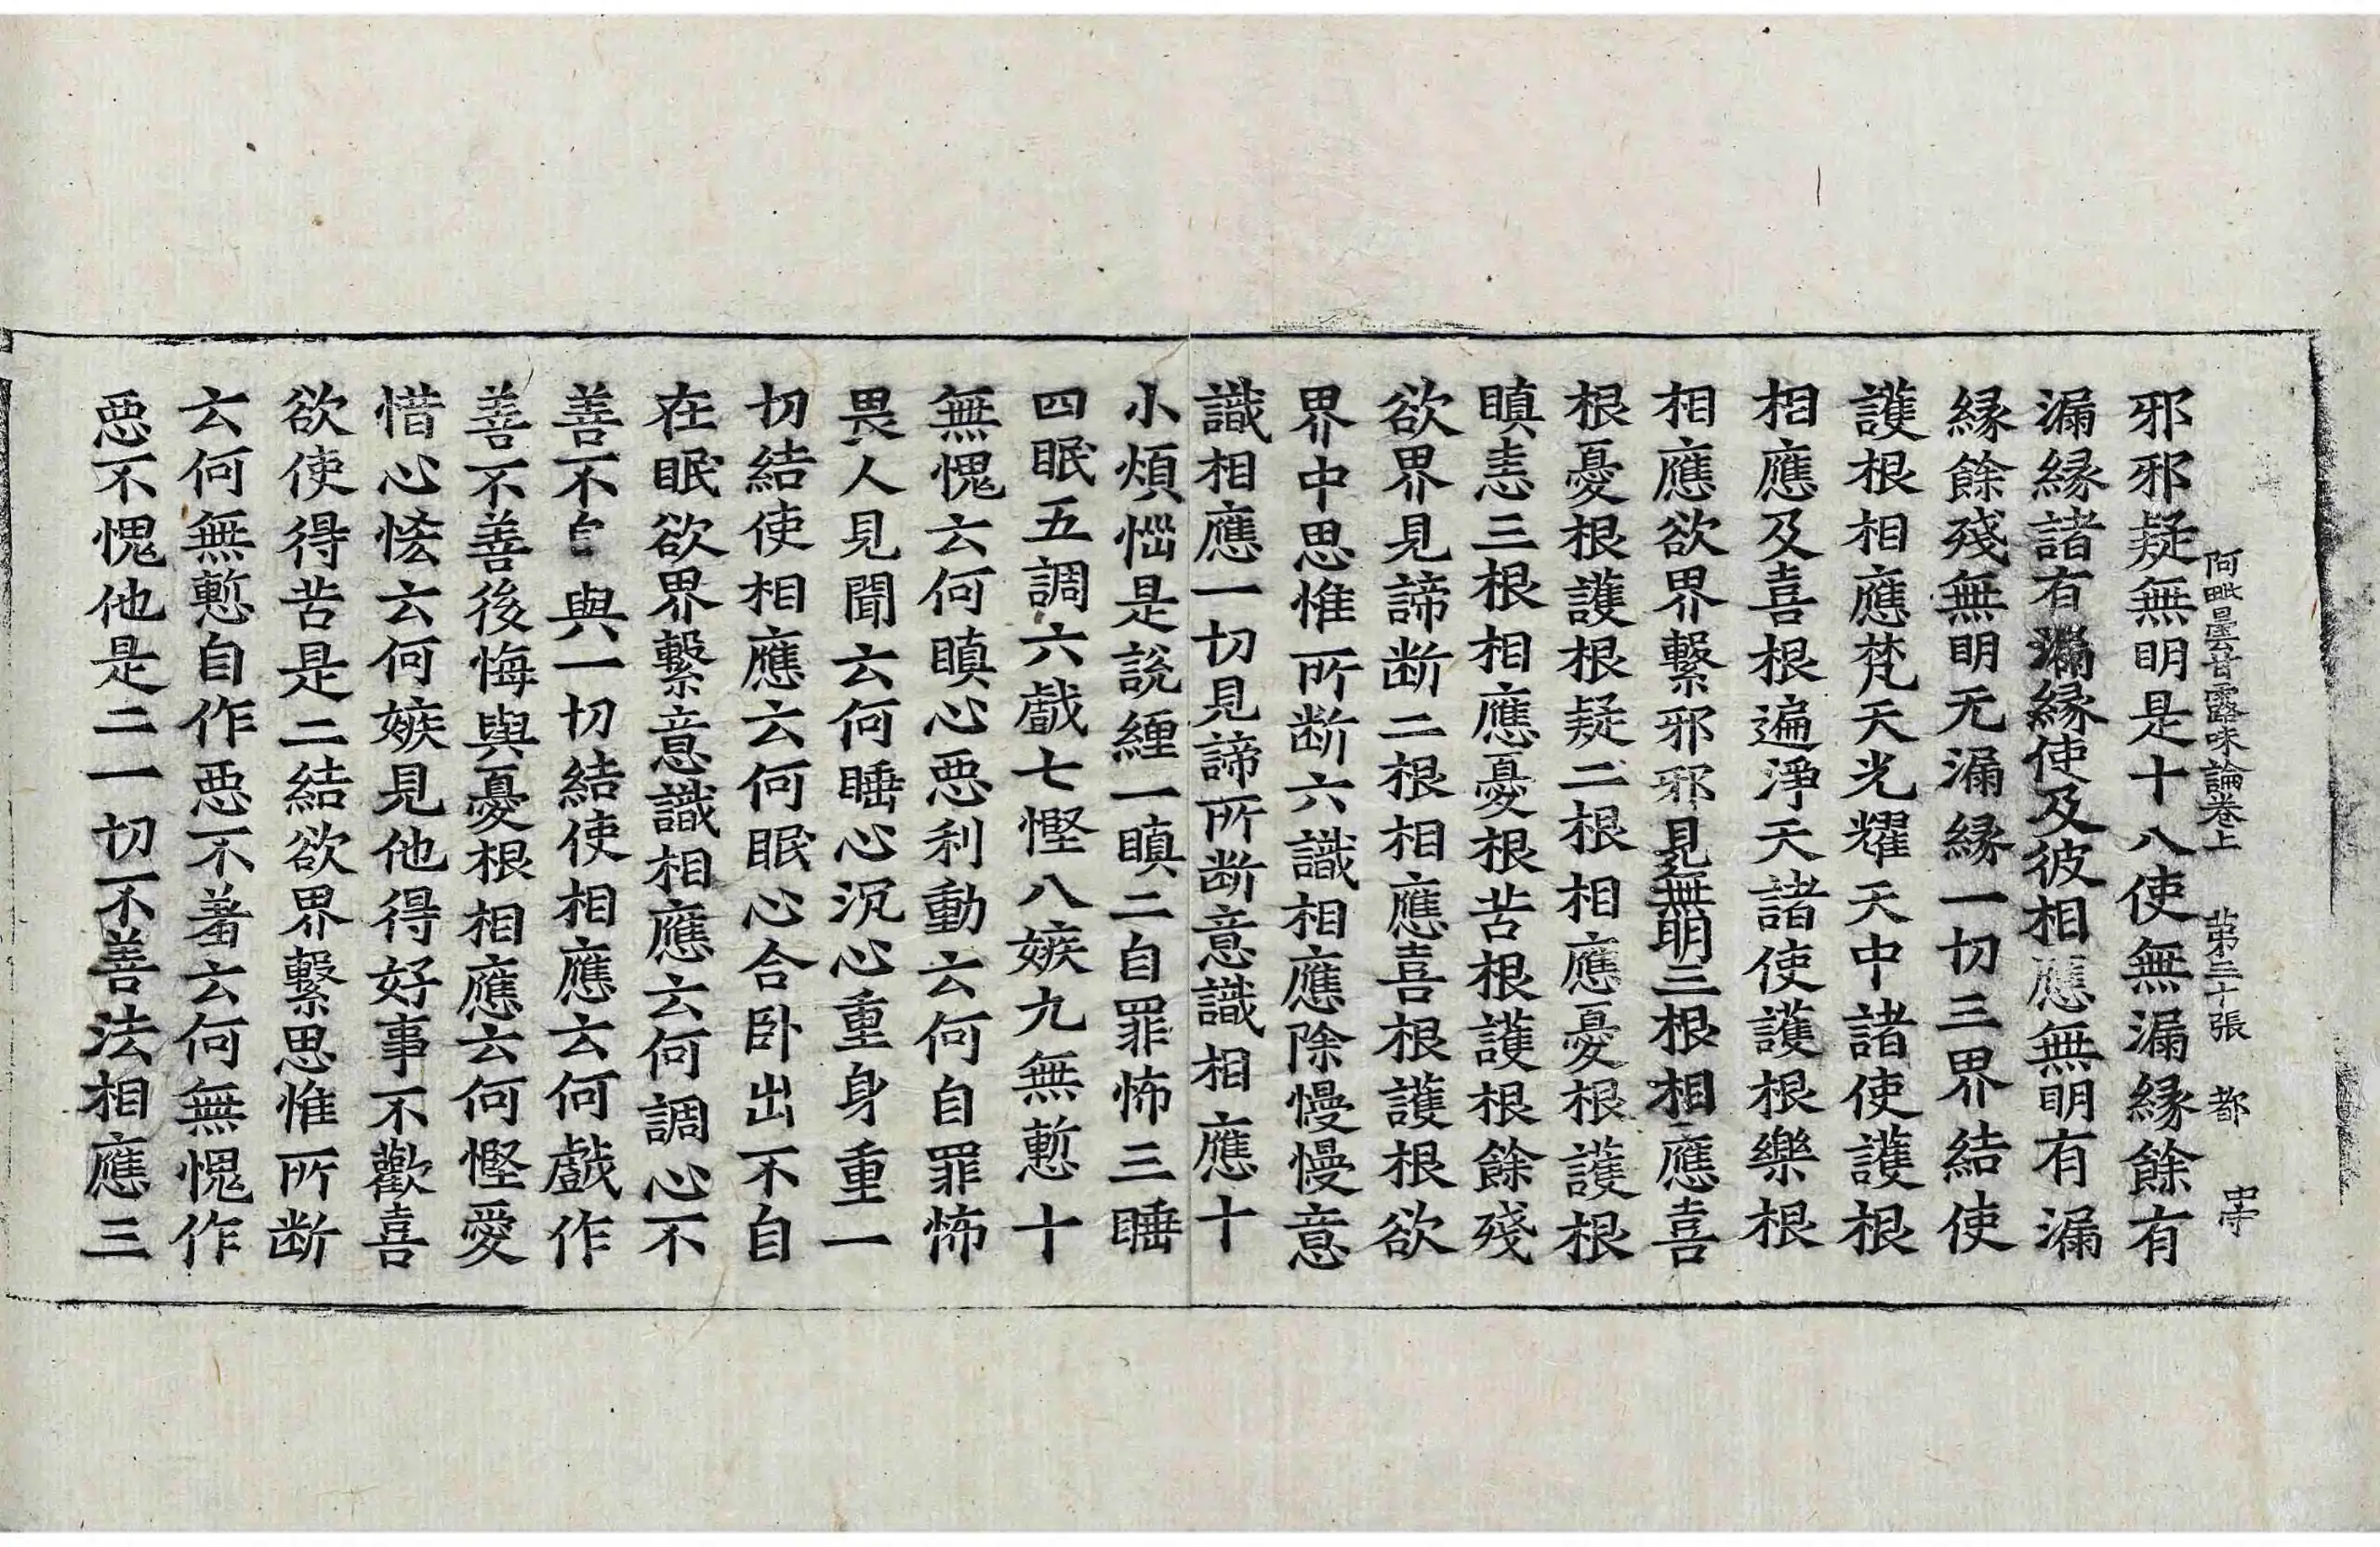 阿毗曇甘露味論卷上　苐三十張　都　中守
邪邪疑無明是十八使無漏縁餘有
漏縁諸有漏縁使及彼相應無明有漏
縁餘殘無明无漏縁一切三界結使
護根相應梵天光耀天中諸使護根
相應及喜根遍淨天諸使護根樂根
相應欲界繫邪邪見無明三根相應喜
根憂根護根疑二根相應憂根護根
瞋恚三根相應憂根苦根護根餘殘
欲界見諦断二根相應喜根護根欲
界中思惟所断六識相應除慢慢意
識相應一切見諦所断意識相應十
小煩惱是說纏一瞋二自罪怖三睡
四眠五調六戲七慳八嫉九無慙十
無愧云何瞋心恶利動云何自罪怖
畏人見聞云何睡心沉心重身重一
切結使相應云何眠心合卧出不自
在眠欲界繫意識相應云何調心不
善不与一切結使相應云何戲作
善不善後悔與憂根相應云何慳愛
惜心恡云何嫉見他得好事不歡喜
欲使得苦是二結欲界繫思惟所断
云何無慙自作恶不羞云何無愧作
恶不愧他是二一切不善法相應三